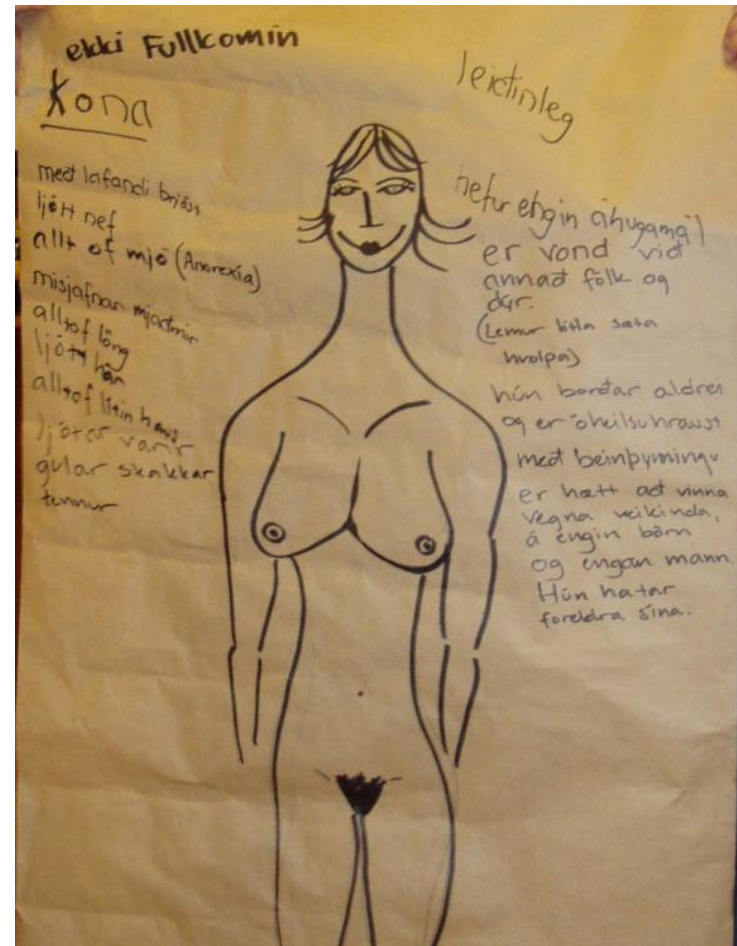 ekki Fullkomin
Kona
með lafandi brjóst
ljótt nef
allt of mjó (Anorexia)
misjafnar mjaðmir
alltof löng
ljótt hár
alltof lítin haus
ljótar varir
gular skakkar
tennur
leiðinleg
hefur engin áhugamál
er vond við
annað fólk og
dýr.
(Lemur litla sæta
hvolpa)
hún borðar aldrei
og er óheilsuhraust
með beinþynningu
er hætt að vinna
vegna veikinda,
á engin börn
og engan mann.
Hún hatar
foreldra sína.